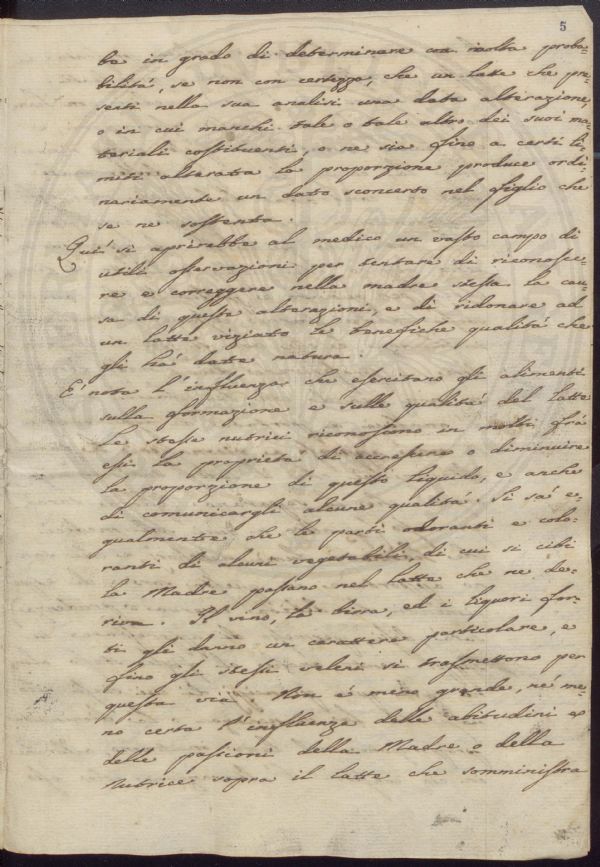 5
be in grado di determinare con molta proba-
bilità, se non con certezza, che un latte che pre-
senti nella sua analisi una data alterazione,
o in cui manchi tale o tale altro dei suoi ma-
teriali costituenti, o ne sia fino a certi li-
miti alterata la proporzione produce ordi-
nariamente un dato sconcerto nel figlio che
se ne sostenta.
Quì si aprirebbe al medico un vasto campo di
utili osservazioni per tentare di riconosce-
re e correggere nella madre stessa la cau-
sa di queste alterazioni, e di ridonare ad
un latte viziato le benefiche qualità che
gli há date natura.
É nota l'influenza che esercitano gli alimenti
sulla formazione e sulle qualità del latte
Le stesse nutrici riconoscono in molti frá
essi la proprietà di accrescere o diminuire
la proporzione di questo liquido, e anche
di comunicargli alcune qualità. Si sá e-
gualmente che le parti odoranti e colo-
ranti di alcuni vegetabili, di cui si cibi
la Madre passano nel latte che ne de-
riva. Il vino, la birra, ed i liquori for-
ti gli danno un carattere particolare, e
fino gli stessi veleni si trasmettono per
questa via. Non é meno grande, né me-
no certa l'influenza delle abitudini e
delle passioni della Madre o della
Nutrice sopra il latte che somministra